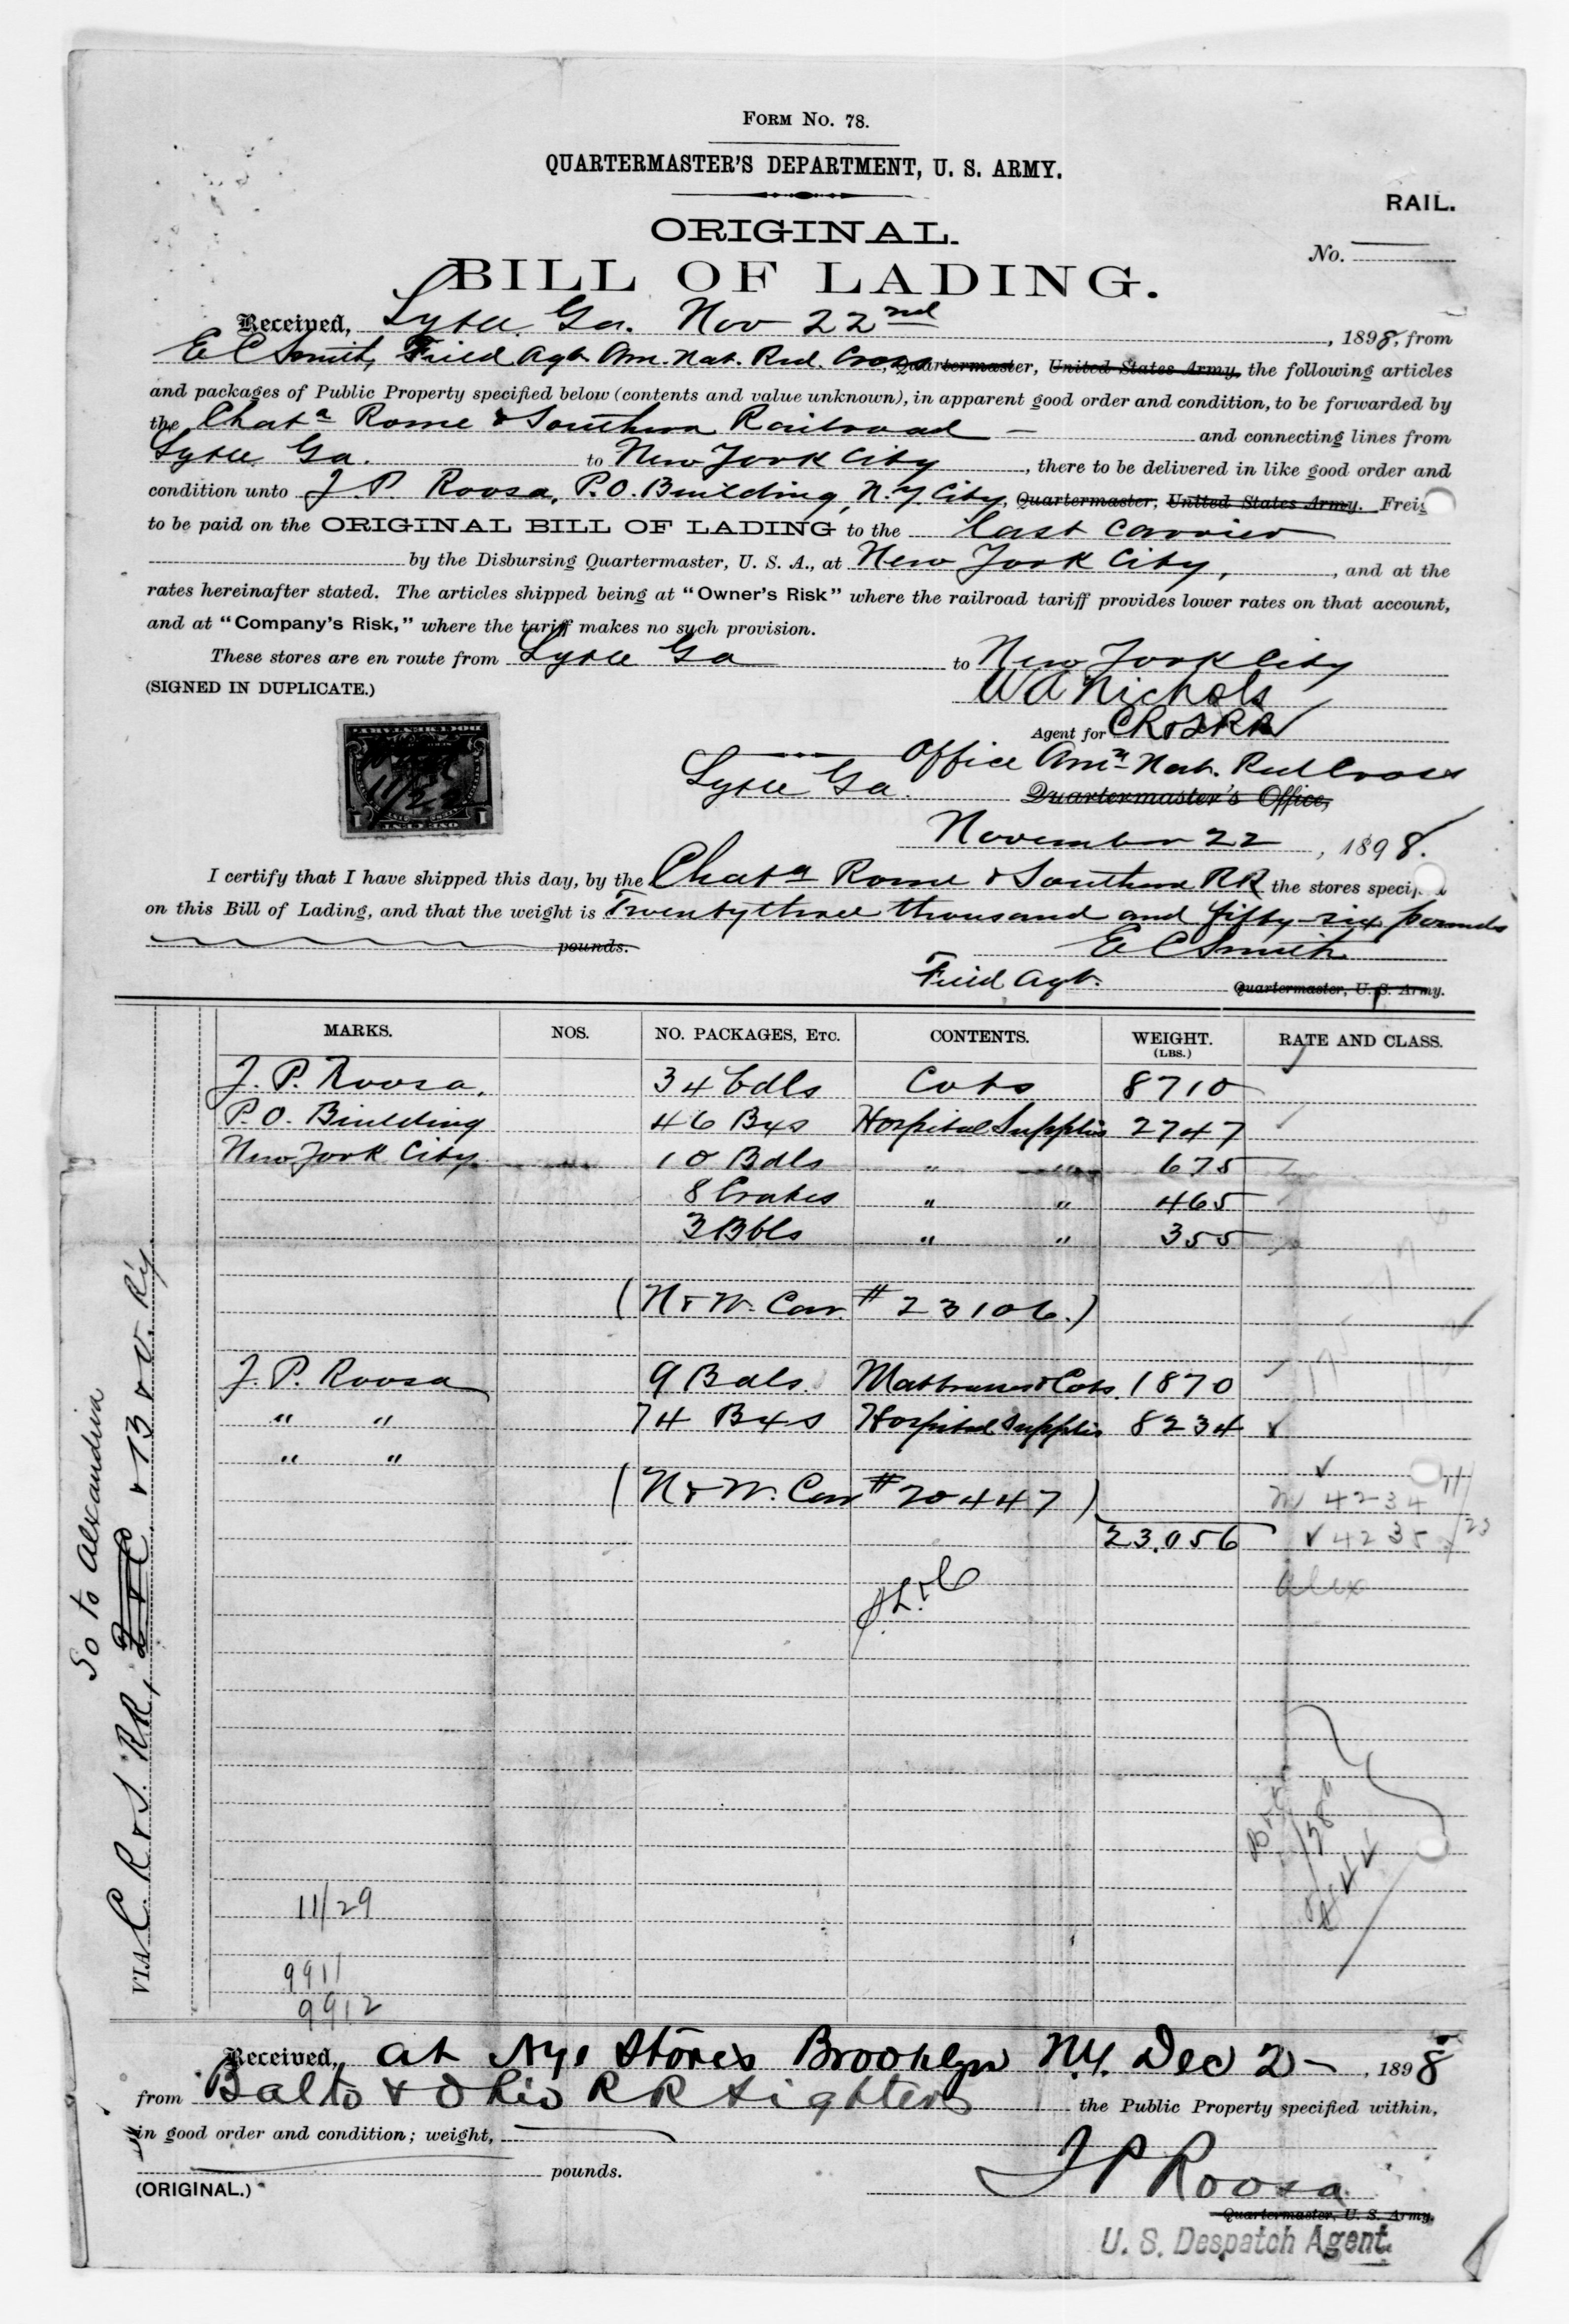 FORM No. 78.
QUARTERMASTER'S DEPARTMENT, U. S. ARMY.
RAIL.
ORIGINAL.
No.
BILL OF LADING.
Received, Lytle Ga. Nov 22nd, 1898, from
E C Smith, Field Agt. Am. Nat. Red Cross, Quartermaster, United States Army, the following articles
and packages of Public Property specified below (contents and value unknown), in apparent good order and condition, to be forwarded by
the Chata Rome & Southern Railroad — and connecting lines from
Lytle Ga. to New York City, there to be delivered in like good order and
condition unto J. P. Roosa, P.O. Building, N.Y. City, Quartermaster, United States Army. Freig
to be paid on the ORIGINAL BILL OF LADING to the last carrier
by the Disbursing Quartermaster, U. S. A., at New York City, and at the
rates hereinafter stated. The articles shipped being at "Owner's Risk" where the railroad tariff provides lower rates on that account,
and at "Company's Risk," where the tariff makes no such provision.
These stores are en route from Lytle Ga to New York City
(SIGNED IN DUPLICATE.) W A Nichols
Agent for C R & S R R
Office Amn Nat. Red Cross
Lytle Ga. Quartermaster's Office,
November 22, 1898.
I certify that I have shipped this day, by the Chata Rome & Southern RR the stores specif
on this Bill of Lading, and that the weight is Twenty three thousand and fifty-six pounds
pounds. E C Smith
Field Agt. Quartermaster, U. S. Army.
MARKS. NOS. NO. PACKAGES, ETC. CONTENTS. WEIGHT. (LBS.) RATE AND CLASS.
J. P. Roosa, 34 bdls Cots 8710
P.O. Building 46 Bxs Hospital Supplies 2747
New York City 10 Bdls " " 675
8 Crates " " 465
3 Bbls " " 355
(N & W. Car # 23106.)
J. P. Roosa 9 Bdls. Mattresses & Cots 1870
" " 74 Bxs Hospital Supplies 8234
" "
(N & W. Car # 20447)
4234
23,056 4235
Alex
11/29
9911
9912
So to Alexandria
VIA C. R. & S. RR,
Received, at Nye Stores Brooklyn N.Y. Dec 2 —, 1898
from Balto & Ohio R R Lighter the Public Property specified within,
in good order and condition; weight,
pounds.
(ORIGINAL.)
J P Roosa
Quartermaster, U. S. Army.
U. S. Despatch Agent.